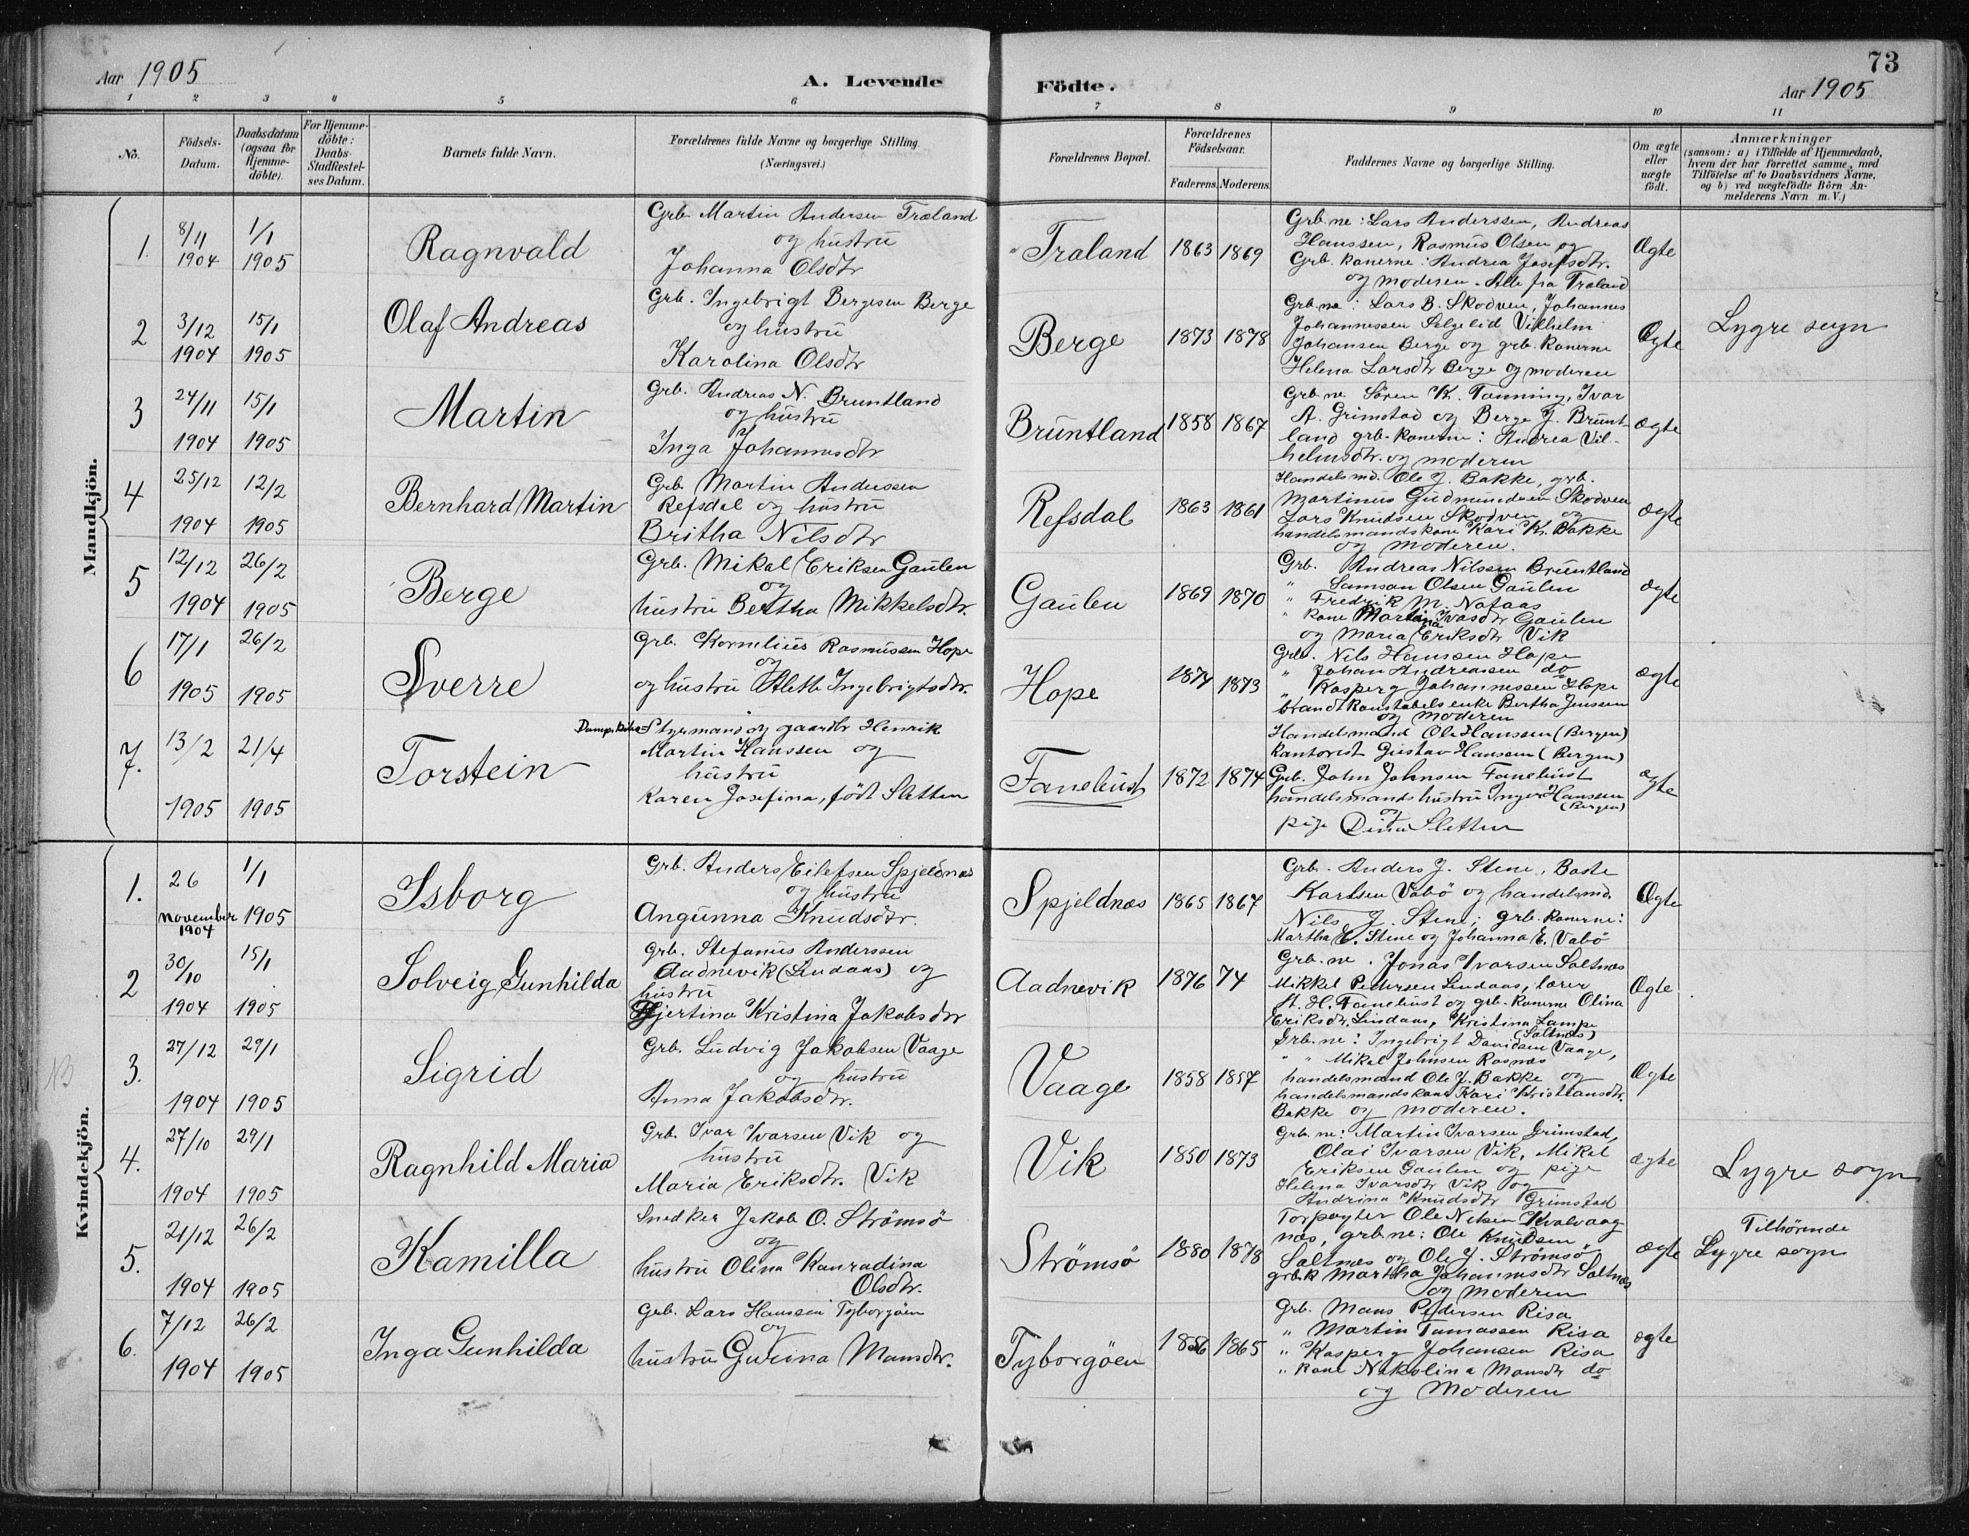 73
Aar 1905
A. Levende
Födte.
Aar 1905
1 2 3 4 5 6 7 8 9 10 11
No.
Födsels-Datum.
Daabsdatum (ogsaa for Hjemme-döbte).
For Hjemme-döbte: Daabs-Stadfæstel-ses Datum.
Barnets fulde Navn.
Forældrenes fulde Navne og borgerlige Stilling. (Næringsvei.)
Forældrenes Bopæl.
Forældrenes Födselsaar.
Faderens. Moderens.
Faddernes Navne og borgerlige Stilling.
Om ægte eller uægte födt.
Anmærkninger
(saasom: a) i Tilfælde af Hjemmedaab,
hvem der har forrettet samme, med
Tilföielse af to Daabsvidners Navne,
og b) ved uægtefödte Börn An-
melderens Navn m. V.)
Mandkjön.
1. 8/11 1904 1/1 1905 Ragnvald
Grb. Martin Andersen Træland
og hustru
Johanna Olsdtr
Træland 1863 1869
Grb.ne: Lars Anderssen, Andreas
Hanssen, Rasmus Olsen og
Grb. konerne: Andrea Josefsdtr.
og moderen. Alle fra Træland
Ægte
2 3/12 1904 15/1 1905 Olaf Andreas
Grb. Ingebrigt Bergesen Berge
og hustru
Karolina Olsdtr
Berge 1873 1878
Grb.ne: Lars B. Skodven, Johannes
Johannessen Selgelid Vilhelm
Johansen Berge og grb. konerne
Helena Larsdtr Berge og moderen
Ægte Lygre sogn
3 24/11 1904 15/1 1905 Martin
Grb. Andreas N. Bruntland
og hustru
Inga Johannesdtr
Bruntland 1858 1867
Grb.ne Sören K. Tonning, Ivar
A. Grimstad og Berge J. Brunt-
land grb. konerne: Andrea Vil-
helmsdtr. og moderen
ægte
4 25/12 1904 12/2 1905 Bernhard Martin
Grb. Martin Anderssen
Refsdal og hustru
Britha Nilsdtr
Refsdal 1863 1861
Handelsmd. Ole J. Bakke, grb.
Martinus Gudmundsen Skodven
Lars Knudsen Skodven og
handelsmandskone Kari K. Bakke
og moderen.
ægte
5 12/12 1904 26/2 1905 Berge
Grb. Mikal Eriksen Gaulen
og
hustru Bertha Mikkelsdtr.
Gaulen 1869 1870
Grb. Andreas Nilssen Bruntland
" Samson Olsen Gaulen
" Fredrik M. Nataas
" kone Martina Ivarsdtr Gaulen
og Maria Eriksdtr Vik
ægte
6 17/1 1905 26/2 1905 Sverre
Grb. Kornelius Rasmussen Hope
og
og hustru Alethe Ingebrigtsdtr.
Hope 1874 1873
Grb. Nils Hanssen Hope
" Johan Andreassen do
" Kasper Johannessen Hope
brandkonstabels enke Bertha Jenssen
og moderen
ægte
7. 13/2 1905 21/4 1905 Torstein
Styrmand og gaardbr Henrik
Martin Hanssen og
hustru
Karen Josefina, født Sletten
Fanebust 1872 1874
Handelsmand Ole Hanssen (Bergen)
kontorist Gustav Hanssen (Bergen)
Grb. John Johnsen Fanebust
handelsmands hustru Inger Hanssen
(Bergen)
og
pige Dina Sletten
ægte
Kvindekjön.
1. 26 november 1904 1/1 1905 Isborg
Grb. Anders Eilefsen Spjeldnæs
og hustru
Angunna Knudsdtr.
Spjeldnæs 1865 1867
Grb. Anders J. Stene, Baste
Karlsen Vabö og handelsmd.
Nils J. Stene; grb. konerne:
Martha E. Stene og Johanna E. Vabö
Ægte
2 30/10 1904 15/1 1905 Solveig Gunhilda
Grb. Stefanus Anderssen
Aadnevik (Lindaas) og
hustru
Hjertina Kristina Jakobsdtr
Aadnevik 1876 74
Grb.ne. Jonas Ivarsen Saltnæs
Mikkel Pedersen Lindaas, lærer
A. H. Fanebust og grb. konerne Olina
Eriksdtr, Lindaas, Kristina Lampe
(Saltnæs)
Ægte
NB
3. 27/12 1904 29/1 1905 Sigrid
Grb. Ludvig Jakobsen Vaage
og hustru
Anna Jakobsdtr.
Vaage 1858 1857
Grb.ne: Ingebrigt Davidsen Vaage,
" " Mikal Johnsen Rosnæs
handelsmand Ole J. Bakke og
handelsmandskone Kari Kristiansdtr.
Bakke og moderen.
Ægte
4. 27/10 1904 29/1 1905 Ragnhild Maria
Grb. Ivar Ivarsen Vik og
hustru
Maria Eriksdtr. Vik
Vik 1850 1873
Grb.ne: Martin Ivarsen Grimstad,
Olai Ivarsen Vik, Mikel
Eriksen Gaulen og pige
Helena Ivarsdtr Vik og
Andrina Knudsdtr Grimstad
ægte Lygre sogn
5. 21/12 1904 26/2 1905 Kamilla
Snedker Jakob O. Strömsö
og
hustru Olina Konradina
Olsdtr.
Strömsö 1880 1878
Torpagter Ole Nilsen Kvalvaag
næs, grb.ne: Ole Knudsen
Saltnæs og Ole J. Strömsö
grb.k Martha Johannesdtr Saltnæs
og moderen
ægte Tilhörende
Lygre sogn
6. 7/12 1904 26/2 1905 Inga Gunhilda
Grb. Lars Hanssen Tyborgöen
og
hustru Gurina Monsdtr.
Tyborgöen 1856 1865
Grb. Mons Pedersen Risa
" Martin Tomassen Risa
" Kasper Johansen Risa
" kone Nikolina Monsdtr do
og Moderen
ægte